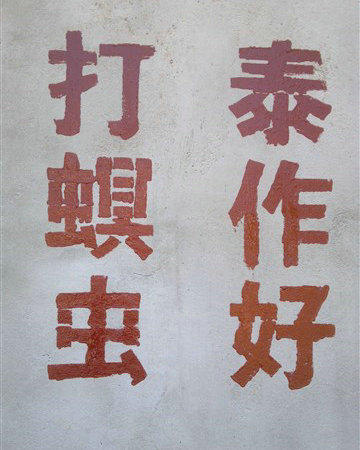 泰作好
打螟虫